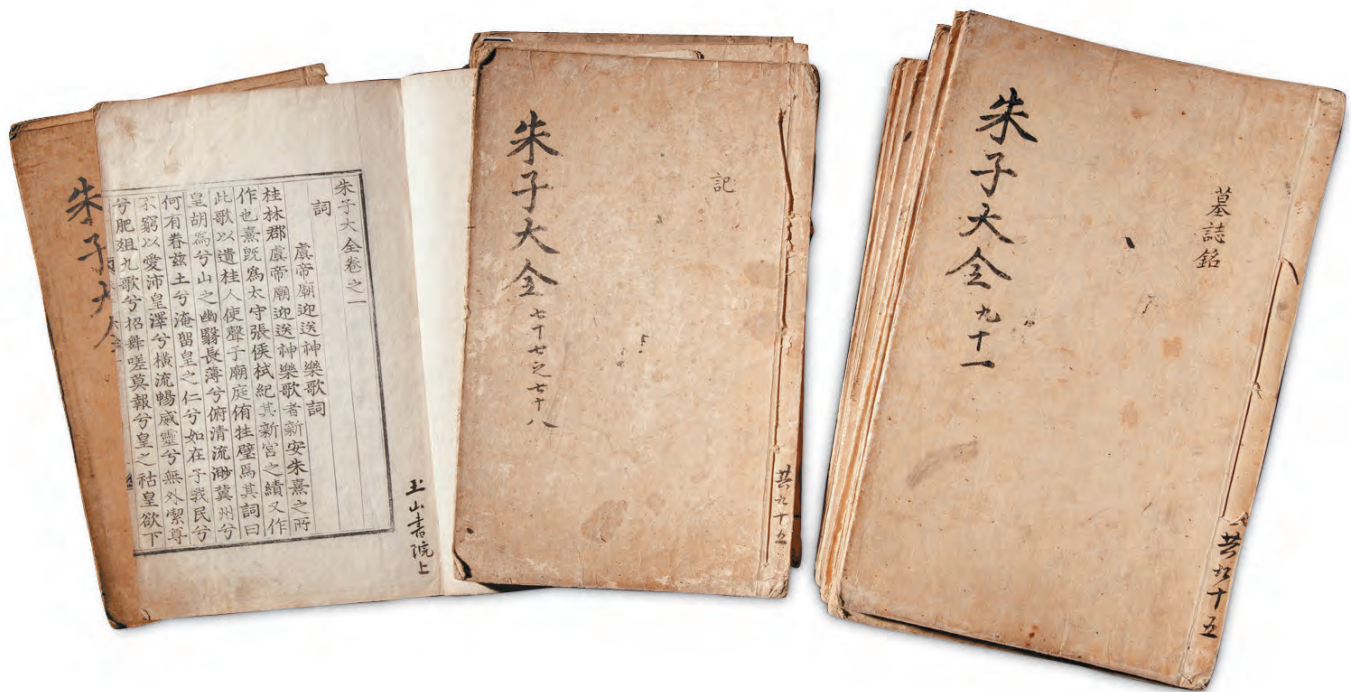 朱子大全
朱子大全卷之一
詞
虞帝廟迎送神樂歌詞
桂林郡虞帝廟迎送神樂歌者新安朱熹之所
作也熹既爲太守張侯栻紀其新宮之績又作
此歌以遺桂人使聲于廟庭侑牲璧焉其詞曰
皇胡爲兮山之幽翳長薄兮俯清流渺冀州兮
何有眷玆土兮淹留皇之仁兮如在子我民兮
不窮以愛沛皇澤兮橫流暢威靈兮無外潔尊
兮肥俎九歌兮招舞嗟莫報兮皇之祜皇欲下
玉山書院上
朱子大全 七十七之七十八
記
共九十五
朱子大全 九十一
墓誌銘
共九十五